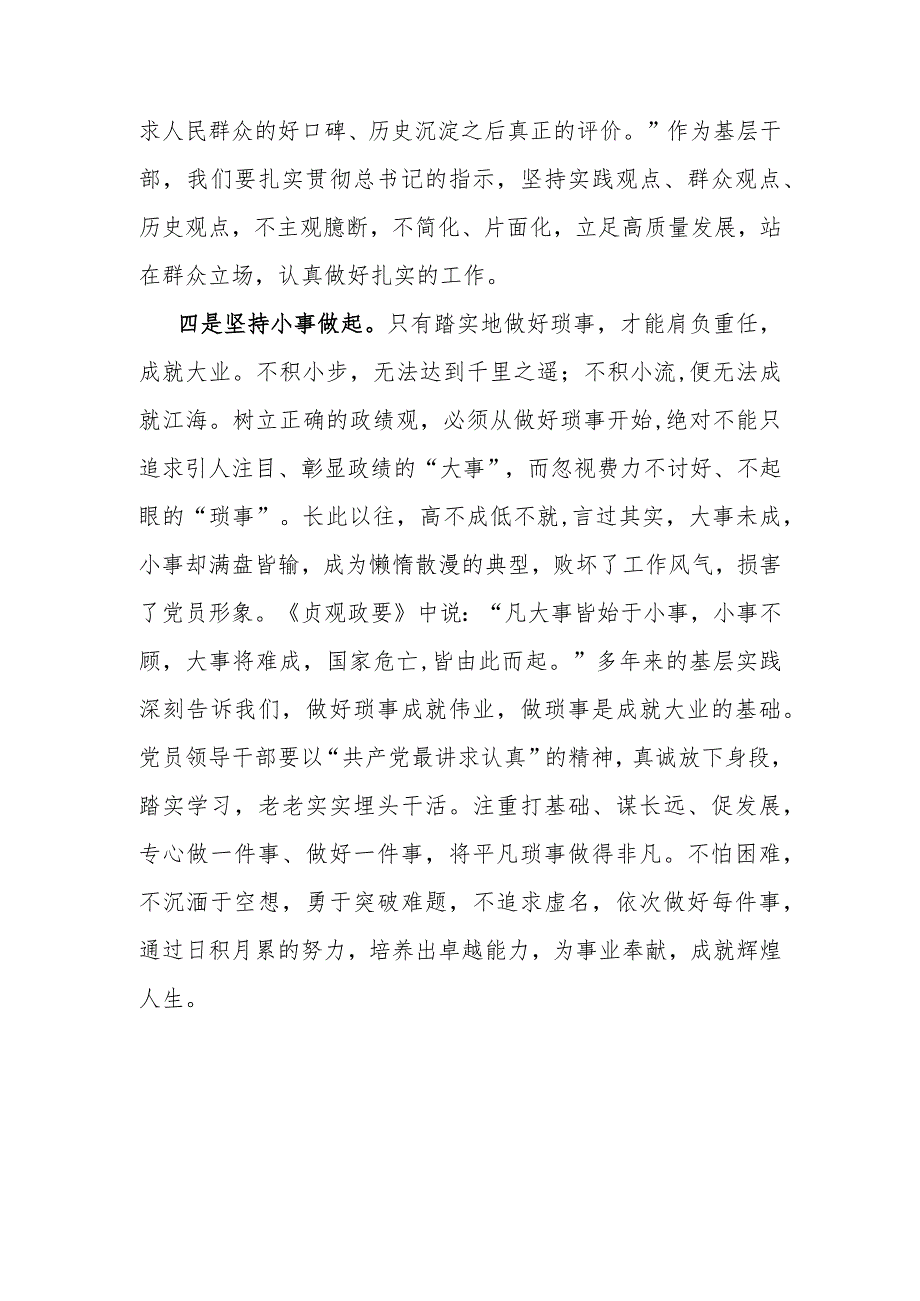 求人民群众的好口碑、历史沉淀之后真正的评价。”作为基层干
部，我们要扎实贯彻总书记的指示，坚持实践观点、群众观点、
历史观点，不主观臆断，不简化、片面化，立足高质量发展，站
在群众立场，认真做好扎实的工作。
四是坚持小事做起。只有踏实地做好琐事，才能肩负重任，
成就大业。不积小步，无法达到千里之遥；不积小流,便无法成
就江海。树立正确的政绩观，必须从做好琐事开始,绝对不能只
追求引人注目、彰显政绩的“大事”，而忽视费力不讨好、不起
眼的“琐事”。长此以往，高不成低不就,言过其实，大事未成，
小事却满盘皆输，成为懒惰散漫的典型，败坏了工作风气，损害
了党员形象。《贞观政要》中说：“凡大事皆始于小事，小事不
顾，大事将难成，国家危亡,皆由此而起。”多年来的基层实践
深刻告诉我们，做好琐事成就伟业，做琐事是成就大业的基础。
党员领导干部要以“共产党最讲求认真”的精神，真诚放下身段，
踏实学习，老老实实埋头干活。注重打基础、谋长远、促发展，
专心做一件事、做好一件事，将平凡琐事做得非凡。不怕困难，
不沉湎于空想，勇于突破难题，不追求虚名，依次做好每件事，
通过日积月累的努力，培养出卓越能力，为事业奉献，成就辉煌
人生。